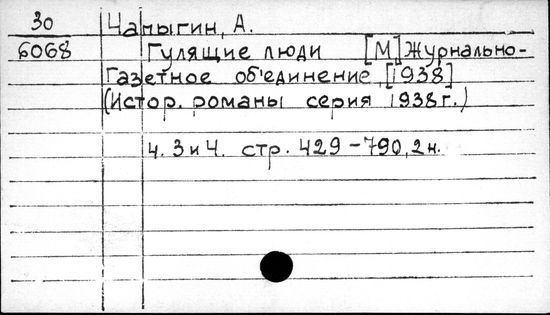 30 Чапыгин, А.
6068 Гулящие люди [М] Журнально-
Газетное об'единение, [1938]
(Истор. романы серия 1938г.)
ч. 3 и 4. стр. 429-790, 2 н.